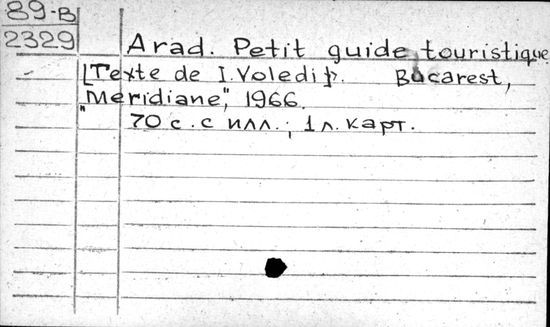 89-B
2329
Arad. Petit guide touristique
[Texte de I. Voledi]. Bucarest,
"Meridiane", 1966.
70 с. с илл.; 1 л. карт.